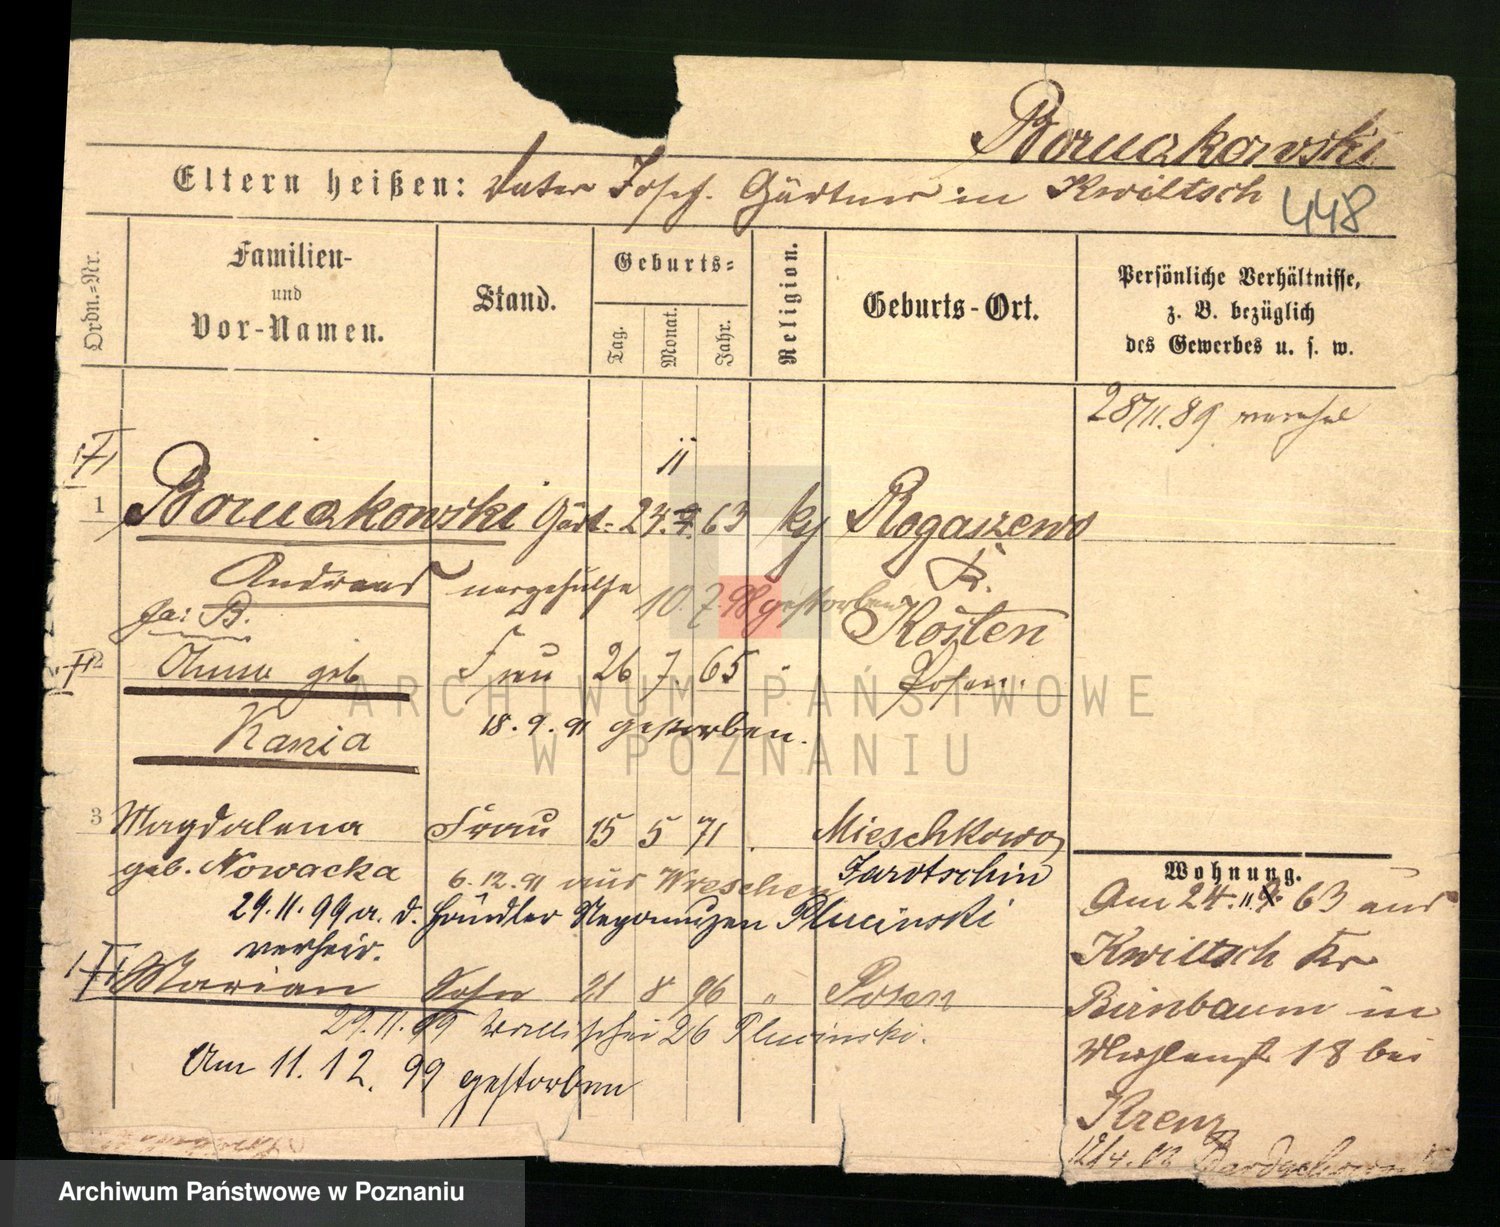 Boruczkowski
Eltern heißen: Vater Josef. Gärtner in Kwiltsch
448
Ordn.=Nr.
Familien-
und
Vor-Namen.
Stand.
Geburts=
Tag.
Monat.
Jahr.
Religion.
Geburts-Ort.
Persönliche Verhältnisse,
z. B. bezüglich
des Gewerbes u. s. w.
28/11.89
11
1 Boruczkowski Gärt= 24. 63 kj Rogaszewo
Andreas nergehülfe 10.7.98 gestorben
K.
Kosten
B.
2 Anna geb Frau 26 7. 65 " Posen.
Kania 18.9.91 gestorben.
3 Magdalena Frau 15 5 71 Mieschkowo
geb. Nowacka 6.12.91 aus Wreschen Jarotschin
29.11.99 a. d. Händler Nepomuzen Plucinski
verheir.
Marian Sohn 21 8 96 " Posen
29.11.99 Wallischei 26 Plucinski.
Am 11.12.99 gestorben
Wohnung.
Am 24. 63 aus
Kwiltsch Kr
Birnbaum in
18 bei
Krenz
12/4.02
ARCHIWUM PAŃSTWOWE
W POZNANIU
Archiwum Państwowe w Poznaniu